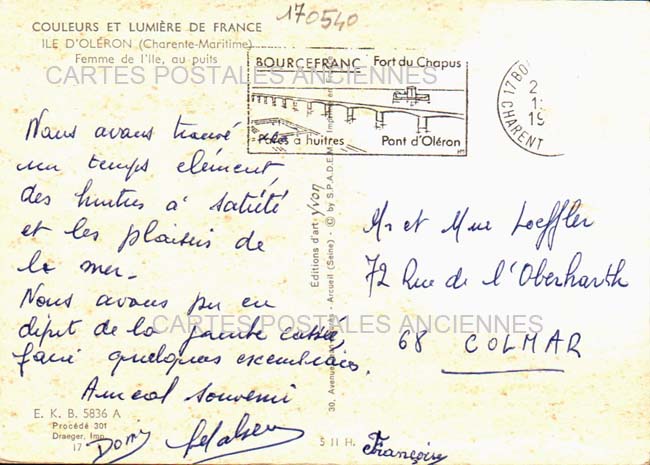 COULEURS ET LUMIÈRE DE FRANCE
ILE D'OLÉRON (Charente-Maritime)
Femme de l'Ile, au puits
170540
CARTES POSTALES ANCIENNES
BOURCEFRANC Fort du Chapus
Parcs à huîtres Pont d'Oléron
17 BO
2
19
CHARENT
Nous avons trouvé
un temps clément,
des huitres à satiété
et les plaisirs de
la mer.
Nous avons pu en
dépit de la jambe cassée,
faire quelques excursions.
Amical souvenir
Françoise
Mr et Mme Loeffler
72 Rue de l'Oberharth
68 COLMAR
CARTES POSTALES ANCIENNES
Editions d'art yvon
30, Arcueil (Seine) - © by S.P.A.D.E.M.
E. K. B. 5836 A
Procédé 301
Draeger, Imp.
17
5 11 H.